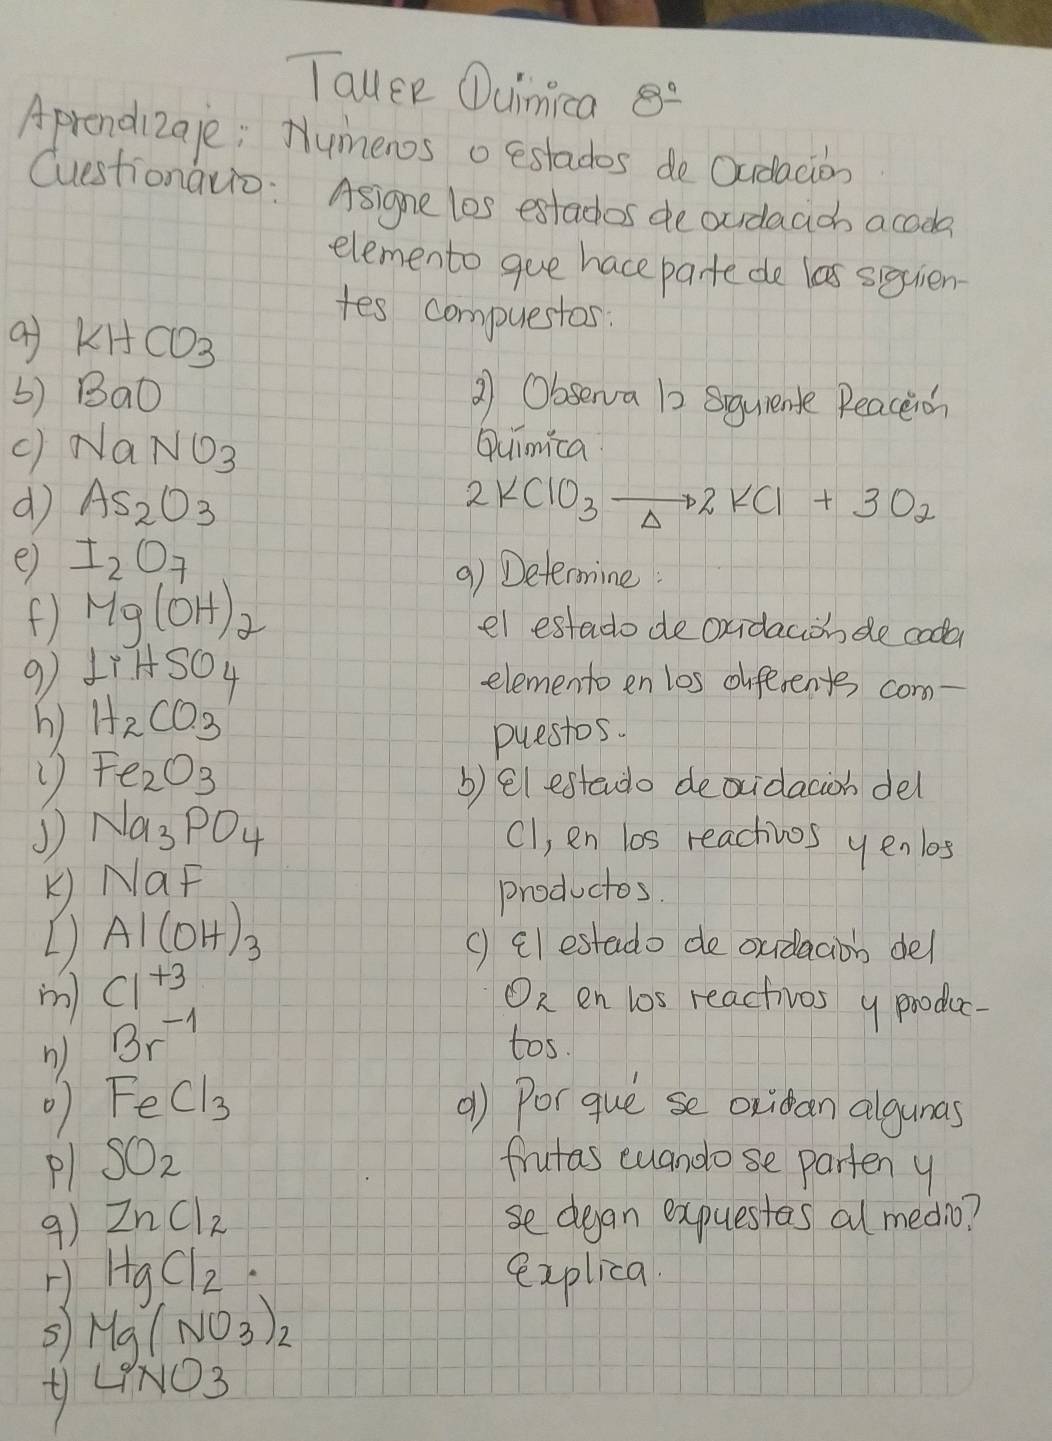 Taller Química 8º
Aprendizaje: Números o estados de Oxidación
Cuestionario: Asigne los estados de oxidación a cada
elemento que hace parte de los siguien-
tes compuestos:
a) KHCO3
b) BaO
c) NaNO3
d) As2O3
e) I2O7
f) Mg(OH)2
g) LiHSO4
h) H2CO3
i) Fe2O3
j) Na3PO4
k) NaF
l) Al(OH)3
m) Cl+3
n) Br-1
o) FeCl3
p) SO2
q) ZnCl2
r) HgCl2
s) Mg(NO3)2
t) LiNO3
2) Observa la siguiente Reacción
Química
2KClO3 →Δ 2KCl + 3O2
a) Determine:
el estado de oxidación de cada
elemento en los diferentes com-
puestos.
b) El estado de oxidación del
Cl, en los reactivos y en los
productos.
c) El estado de oxidación del
O2 en los reactivos y produc-
tos.
d) Por qué se oxidan algunas
frutas cuando se parten y
se dejan expuestas al medio?
Explica.